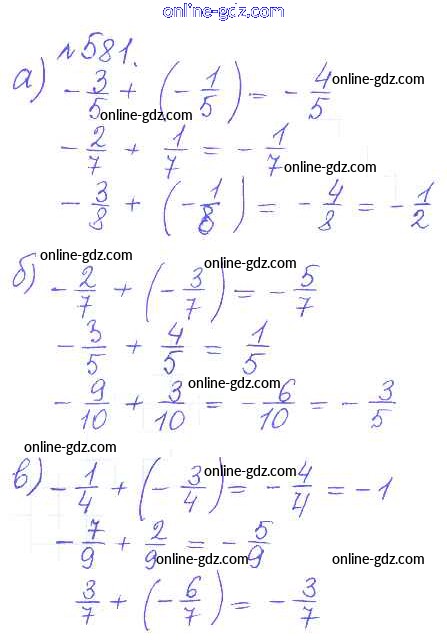 online-gdz.com
№581.
а) -3/5 + (-1/5) = -4/5 online-gdz.com
online-gdz.com
-2/7 + 1/7 = -1/7 online-gdz.com
-3/8 + (-1/8) = -4/8 = -1/2
online-gdz.com online-gdz.com
б) -2/7 + (-3/7) = -5/7
-3/5 + 4/5 = 1/5
online-gdz.com
-9/10 + 3/10 = -6/10 = -3/5
online-gdz.com
в) -1/4 + (-3/4) = -4/4 = -1 online-gdz.com
-7/9 + 2/9 = -5/9
online-gdz.com online-gdz.com
3/7 + (-6/7) = -3/7